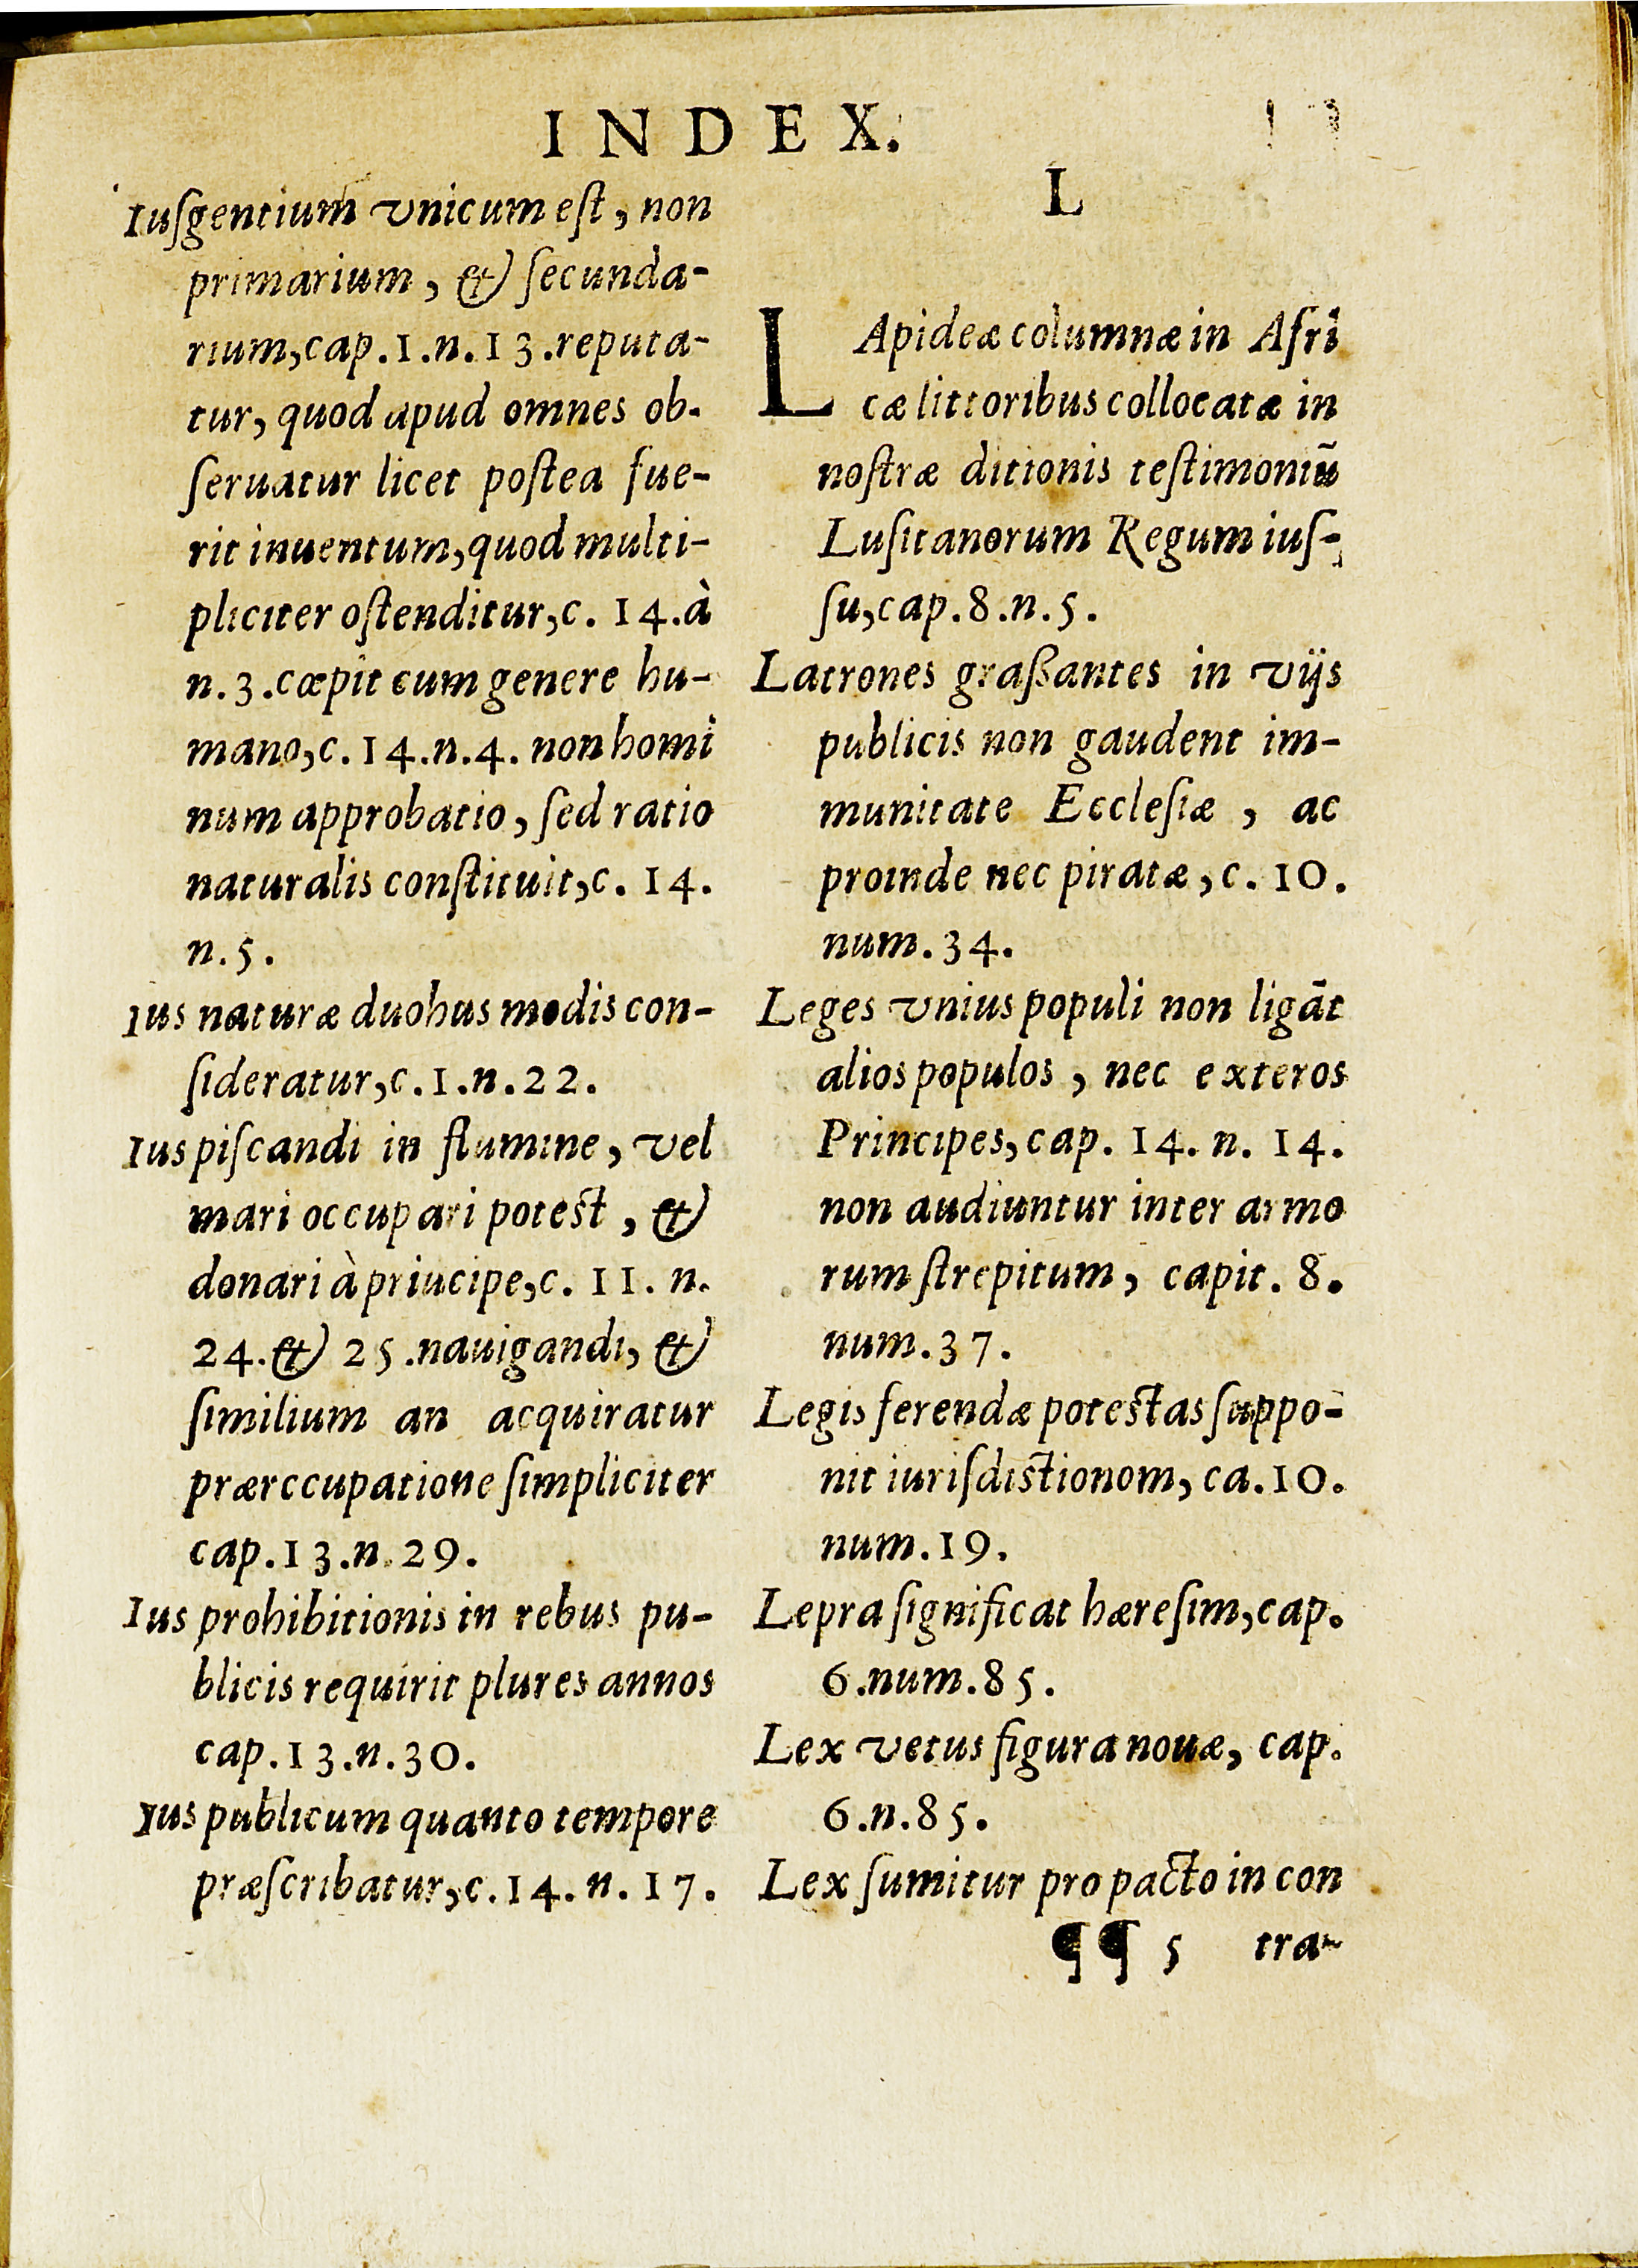 INDEX.
Iuſgentium vnicum eſt, non
primarium, & ſecunda-
rium, cap. 1. n. 13. reputa-
tur, quod apud omnes ob-
ſeruatur licet poſtea fue-
rit inuentum, quod multi-
pliciter oſtenditur, c. 14. à
n. 3. cœpit cum genere hu-
mano, c. 14. n. 4. non homi
num approbatio, ſed ratio
naturalis conſtituit, c. 14.
n. 5.
Ius naturæ duohus modis con-
ſideratur, c. 1. n. 22.
Ius piſcandi in flumine, vel
mari occupari poteſt, &
donari à priucipe, c. 11. n.
24. & 25. nauigandi, &
ſimilium an acquiratur
prærccupatione ſimpliciter
cap. 13. n. 29.
Ius prohibitionis in rebus pu-
blicis requirit plures annos
cap. 13. n. 30.
Ius publicum quanto tempore
præſcribatur, c. 14. n. 17.
L
LApideæ columnæ in Afri
cæ littoribus collocatæ in
noſtræ ditionis teſtimoniũ
Luſitanorum Regum iuſ-
ſu, cap. 8. n. 5.
Latrones graßantes in vijs
publicis non gaudent im-
munitate Eccleſiæ, ac
proinde nec piratæ, c. 10.
num. 34.
Leges vnius populi non ligãt
alios populos, nec exteros
Principes, cap. 14. n. 14.
non audiuntur inter armo
rum ſtrepitum, capit. 8.
num. 37.
Legis ferendæ poteſtas ſuppo-
nit iuriſdiſtionom, ca. 10.
num. 19.
Lepra ſignificat hæreſim, cap.
6. num. 85.
Lex vetus figura nouæ, cap.
6. n. 85.
Lex ſumitur pro pacto in con
¶¶ 5 tra-